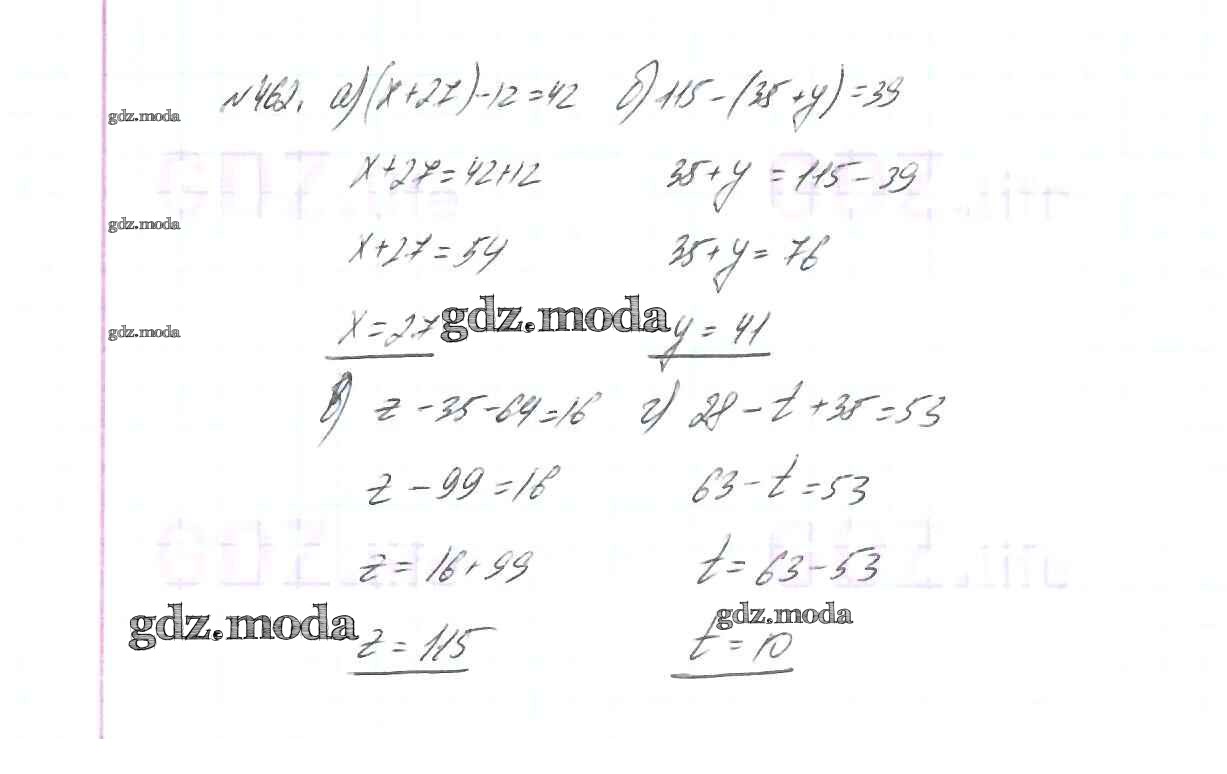 №462. а) (x+27)-12=42 б) 115-(35+y)=39
gdz.moda
x+27=42+12 35+y=115-39
gdz.moda
x+27=54 35+y=76
gdz.moda
x=27 gdz.moda y=41
в) z-35-64=16 г) 28-t+35=53
z-99=16 63-t=53
z=16+99 t=63-53
gdz.moda gdz.moda
z=115 t=10